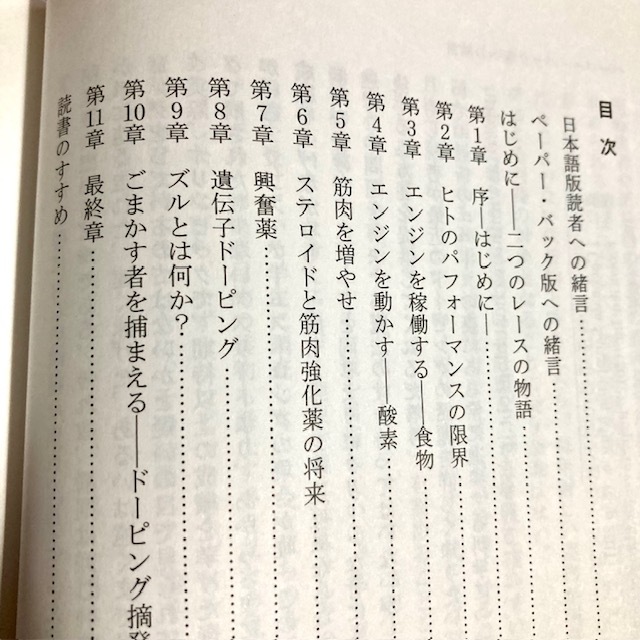 目次
日本語版読者への緒言
ペーパー・バック版への緒言
はじめに――二つのレースの物語
第1章 序―はじめに―
第2章 ヒトのパフォーマンスの限界
第3章 エンジンを稼働する――食物
第4章 エンジンを動かす――酸素
第5章 筋肉を増やせ
第6章 ステロイドと筋肉強化薬の将来
第7章 興奮薬
第8章 遺伝子ドーピング
第9章 ズルとは何か?
第10章 ごまかす者を捕まえる――ドーピング摘発
第11章 最終章
読書のすすめ